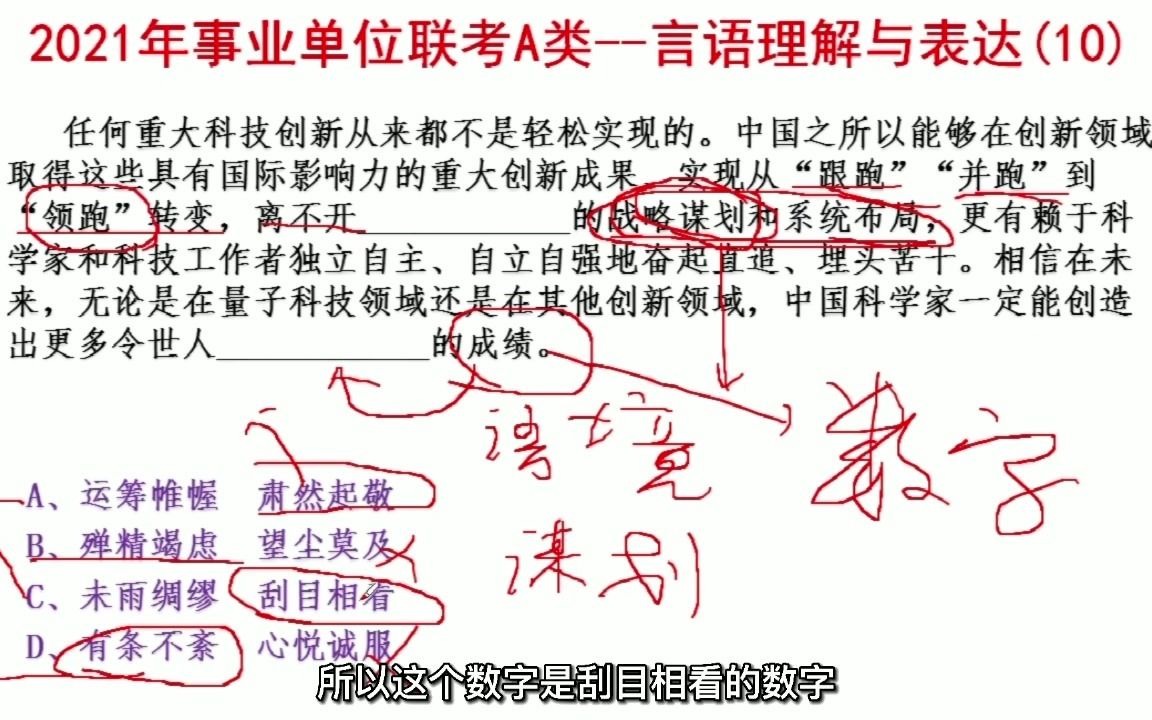 2021年事业单位联考A类--言语理解与表达(10)
任何重大科技创新从来都不是轻松实现的。中国之所以能够在创新领域
取得这些具有国际影响力的重大创新成果,实现从“跟跑”“并跑”到
“领跑”转变,离不开____________的战略谋划和系统布局,更有赖于科
学家和科技工作者独立自主、自立自强地奋起直追、埋头苦干。相信在未
来,无论是在量子科技领域还是在其他创新领域,中国科学家一定能创造
出更多令世人____________的成绩。
语境
数字
谋划
A、运筹帷幄 肃然起敬
B、殚精竭虑 望尘莫及
C、未雨绸缪 刮目相看
D、有条不紊 心悦诚服
所以这个数字是刮目相看的数字